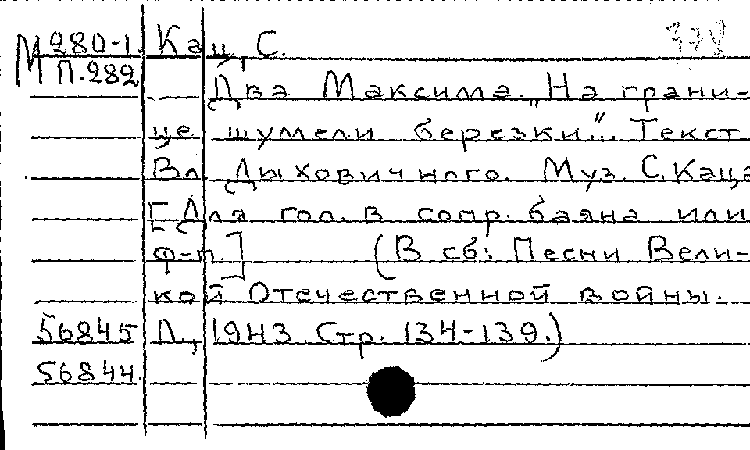 М 280-1. Кац, С. 378
П.282 Два Максима. „На грани-
це шумели березки". Текст
Вл. Дыховичного. Муз. С. Каца
[Для гол. в сопр. баяна или
ф-п.] (В сб: Песни Вели-
кой Отечественной войны.
56845 Л., 1943. Стр. 134-139.)
56844.